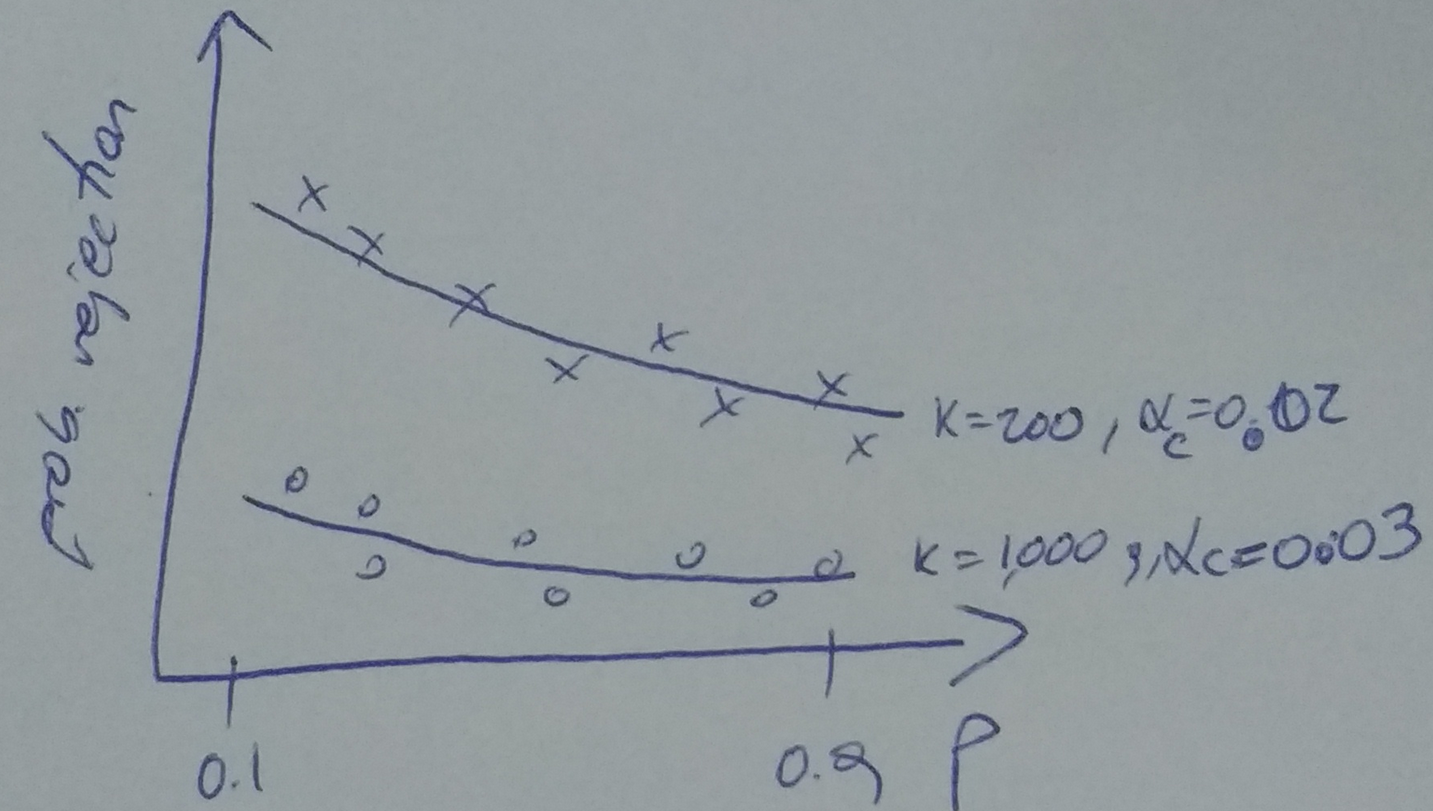 prob. rejection
K=200, αc=0.02
K=1,000, αc=0.03
0.1
0.9
ρ